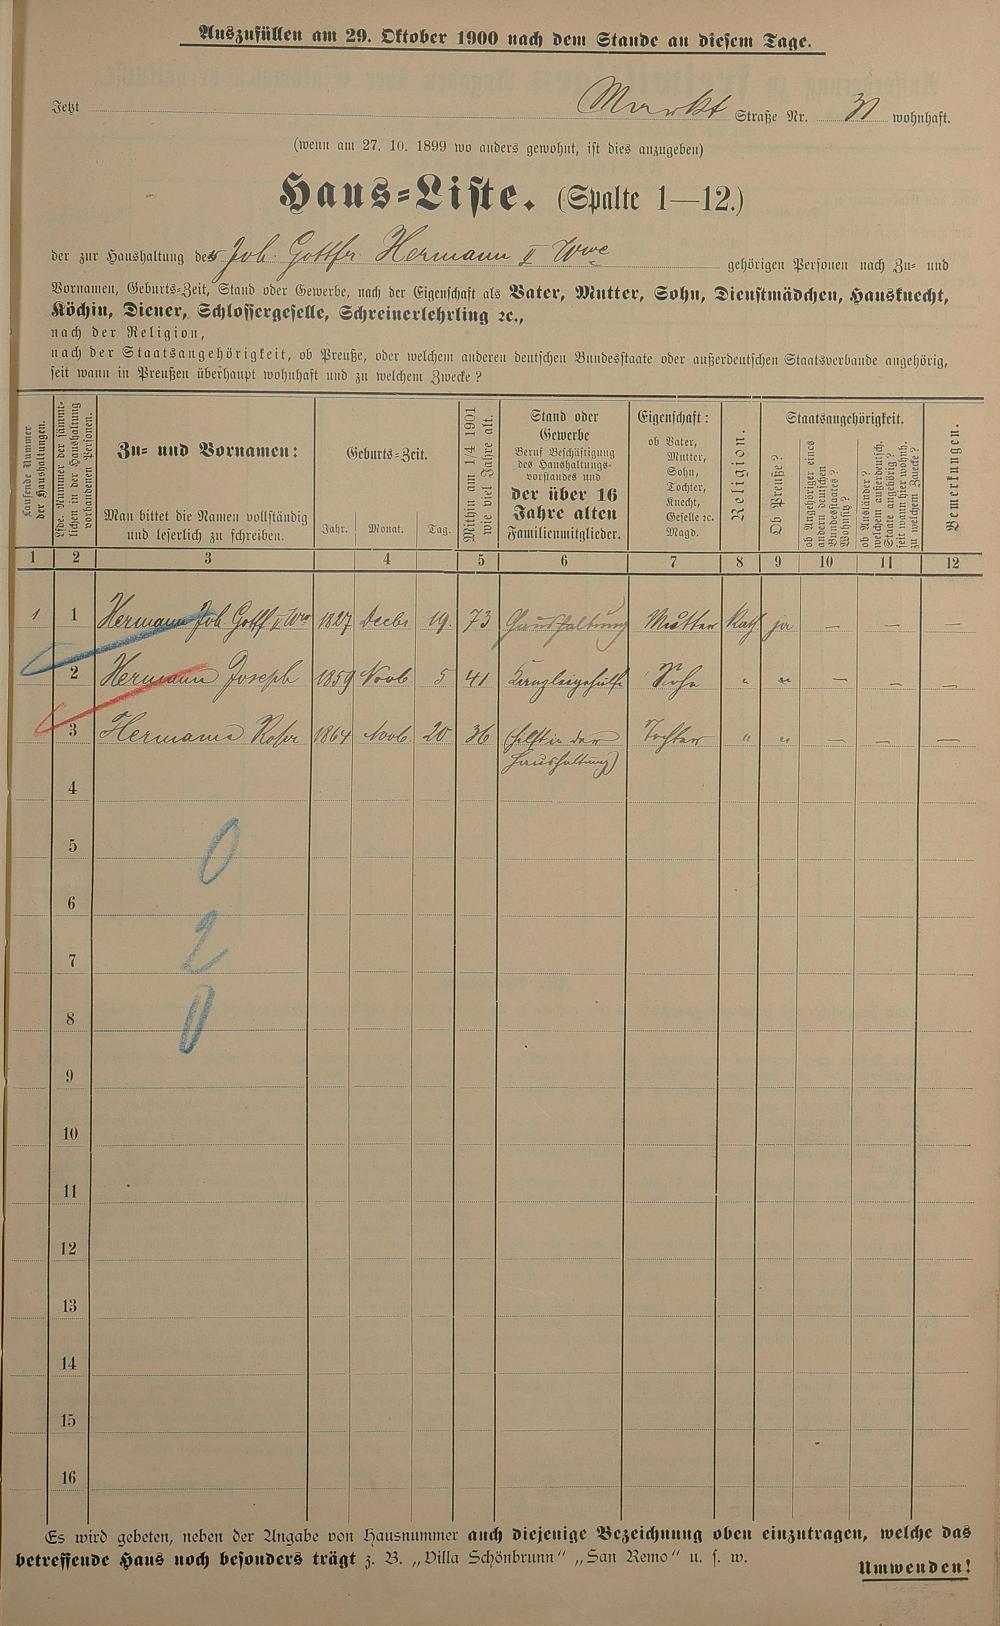 Auszufüllen am 29. Oktober 1900 nach dem Stande an diesem Tage.
Jetzt Markt Straße Nr. 31 wohnhaft.
(wenn am 27. 10. 1899 wo anders gewohnt, ist dies anzugeben)
Haus-Liste. (Spalte 1—12.)
der zur Haushaltung des Joh. Gottfr. Hermann II Wwe gehörigen Personen nach Zu- und
Vornamen, Geburts-Zeit, Stand oder Gewerbe, nach der Eigenschaft als Vater, Mutter, Sohn, Dienstmädchen, Hausknecht,
Köchin, Diener, Schlossergeselle, Schreinerlehrling ꝛc.,
nach der Religion,
nach der Staatsangehörigkeit, ob Preuße, oder welchem anderen deutschen Bundesstaate oder außerdeutschen Staatsverbande angehörig,
seit wann in Preußen überhaupt wohnhaft und zu welchem Zwecke?
Laufende Nummer
der Haushaltungen.
Lfde. Nummer der sämmt-
lichen in der Haushaltung
vorhandenen Personen.
Zu- und Vornamen:
Man bittet die Namen vollständig
und leserlich zu schreiben.
Geburts-Zeit.
Jahr. Monat. Tag.
Mithin am 1/4 1901
wie viel Jahre alt.
Stand oder
Gewerbe
Beruf Beschäftigung
des Haushaltungs-
vorstandes und
der über 16
Jahre alten
Familienmitglieder.
Eigenschaft:
ob Vater,
Mutter,
Sohn,
Tochter,
Knecht,
Geselle ꝛc.
Magd.
Religion.
Staatsangehörigkeit.
Ob Preuße?
ob Angehöriger eines
andern deutschen
Bundesstaates?
Wohnsitz?
ob Ausländer?
welchem außerdeutsch.
Staate angehörig?
seit wann hier wohnh.
zu welchem Zwecke?
Bemerkungen.
1 2 3 4 5 6 7 8 9 10 11 12
1 1 Hermann Joh. Gottf. II Wwe 1827 Decbr 19. 73 Haushaltung Mutter Kath ja — — —
2 Hermann Joseph 1859 Novb. 5 41 Kanzleigehülfe Sohn " " — — —
3 Hermann Rosa 1864 Novb. 20 36 (hilft in der Tochter " " — — —
Haushaltung)
4
5
0
6
7
2
8
0
9
10
11
12
13
14
15
16
Es wird gebeten, neben der Angabe von Hausnummer auch diejenige Bezeichnung oben einzutragen, welche das
betreffende Haus noch besonders trägt z. B. „Villa Schönbrunn" „San Remo" u. s. w.
Umwenden!